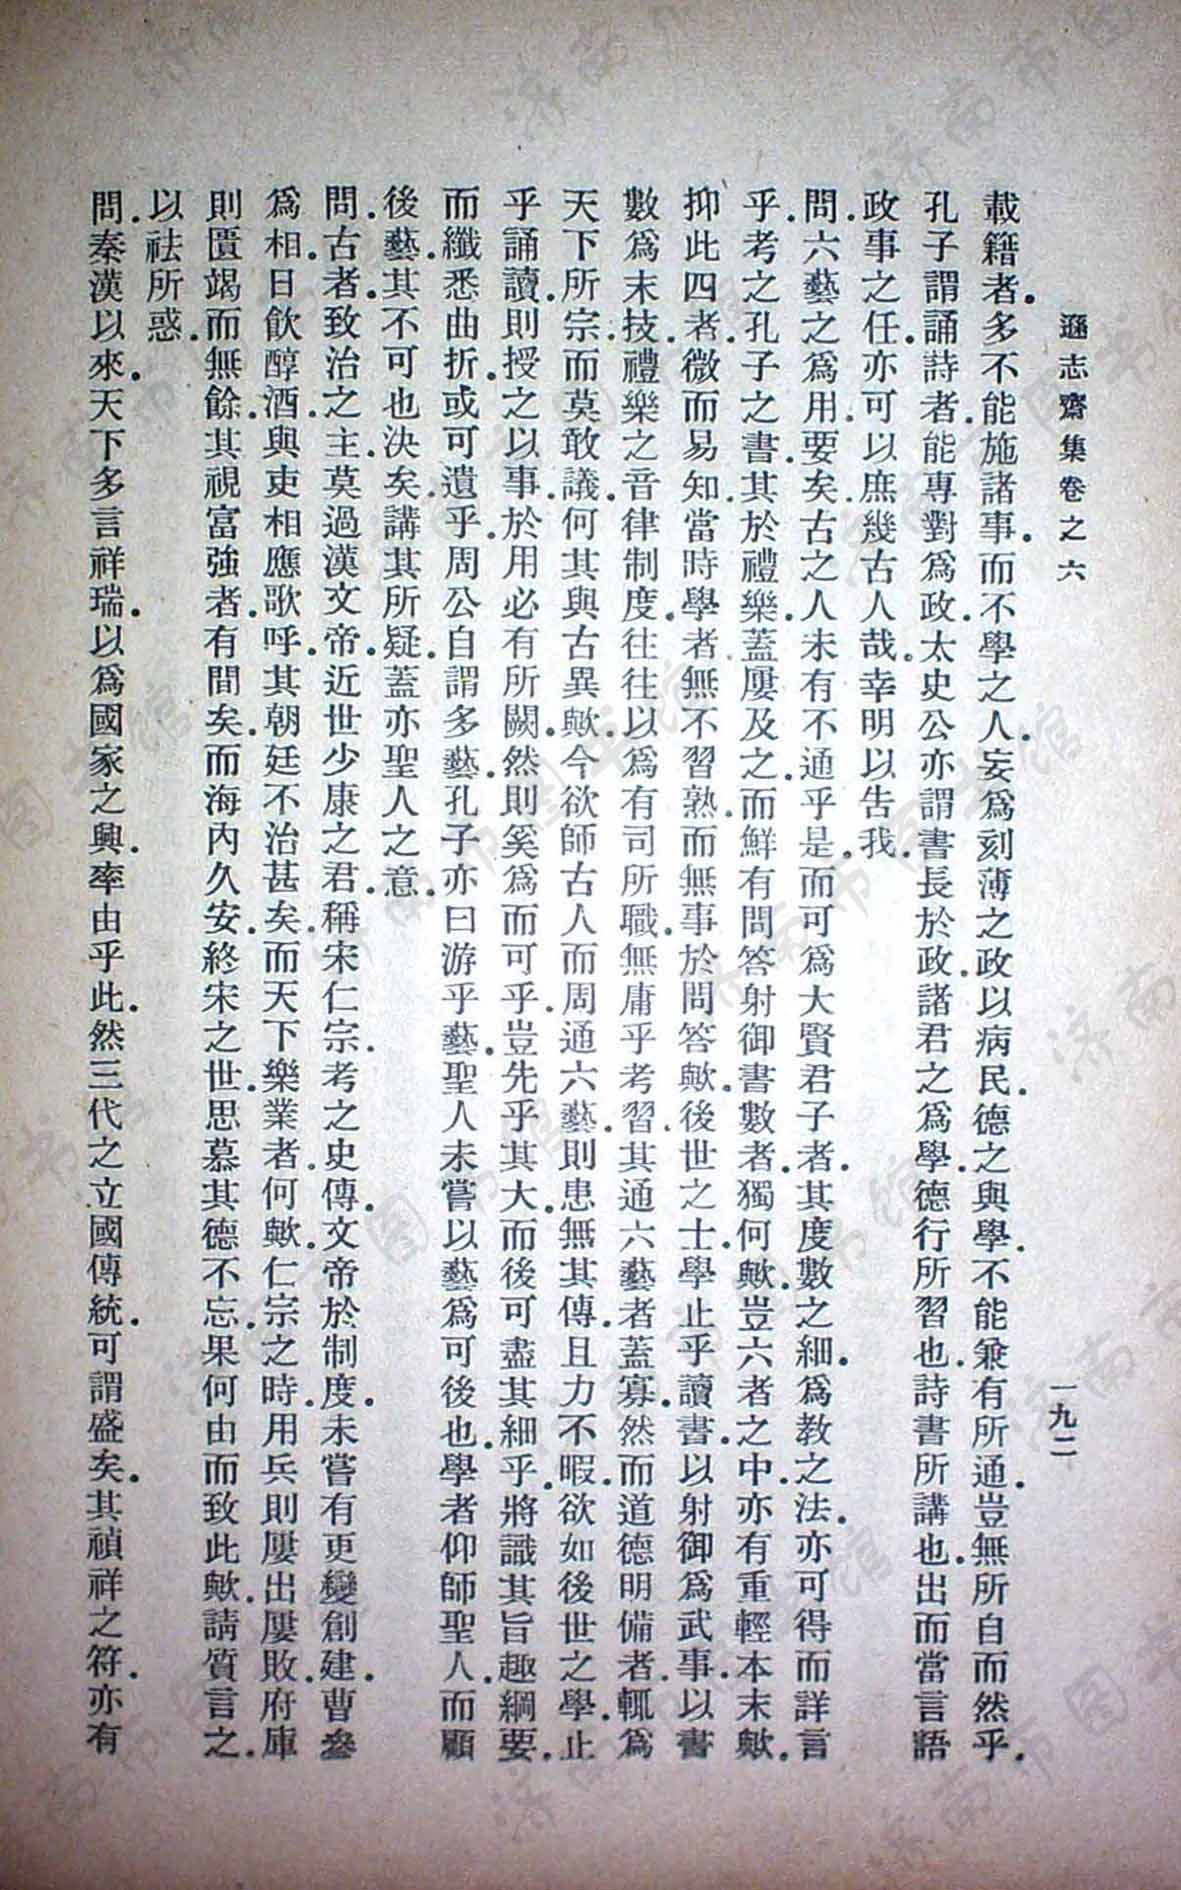 遜志齋集卷之六
一九二
載籍者.多不能施諸事.而不學之人.妄爲刻薄之政以病民.德之與學.不能兼有所通.豈無所自而然乎.
孔子謂誦詩者.能專對爲政.太史公亦謂書長於政.諸君之爲學.德行所習也.詩書所講也.出而當言語
政事之任.亦可以庶幾古人哉.幸明以告我.
問.六藝之爲用.要矣.古之人.未有不通乎是.而可爲大賢君子者.其度數之細.爲教之法.亦可得而詳言
乎.考之孔子之書.其於禮樂.蓋屢及之.而鮮有問答射御書數者.獨何歟.豈六者之中.亦有重輕本末歟.
抑此四者.微而易知.當時學者.無不習熟.而無事於問答歟.後世之士.學止乎讀書.以射御爲武事.以書
數爲末技.禮樂之音律制度.往往以爲有司所職.無庸乎考習.其通六藝者蓋寡.然而道德明備者.輒爲
天下所宗.而莫敢議.何其與古異歟.今欲師古人而周通六藝.則患無其傳.且力不暇.欲如後世之學.止
乎誦讀.則授之以事.於用必有所闕.然則奚爲而可乎.豈先乎其大.而後可盡其細乎.將識其旨趣綱要.
而纖悉曲折.或可遺乎.周公自謂多藝.孔子亦曰游乎藝.聖人未嘗以藝爲可後也.學者仰師聖人.而顧
後藝.其不可也決矣.講其所疑.蓋亦聖人之意.
問.古者.致治之主.莫過漢文帝.近世少康之君.稱宋仁宗.考之史傳.文帝於制度.未嘗有更變創建.曹參
爲相.日飲醇酒.與吏相應歌呼.其朝廷不治甚矣.而天下樂業者.何歟.仁宗之時.用兵則屢出屢敗.府庫
則匱竭而無餘.其視富強者.有間矣.而海內久安.終宋之世.思慕其德不忘.果何由而致此歟.請質言之.
以祛所惑.
問.秦漢以來.天下多言祥瑞.以爲國家之興.率由乎此.然三代之立國傳統.可謂盛矣.其禎祥之符.亦有